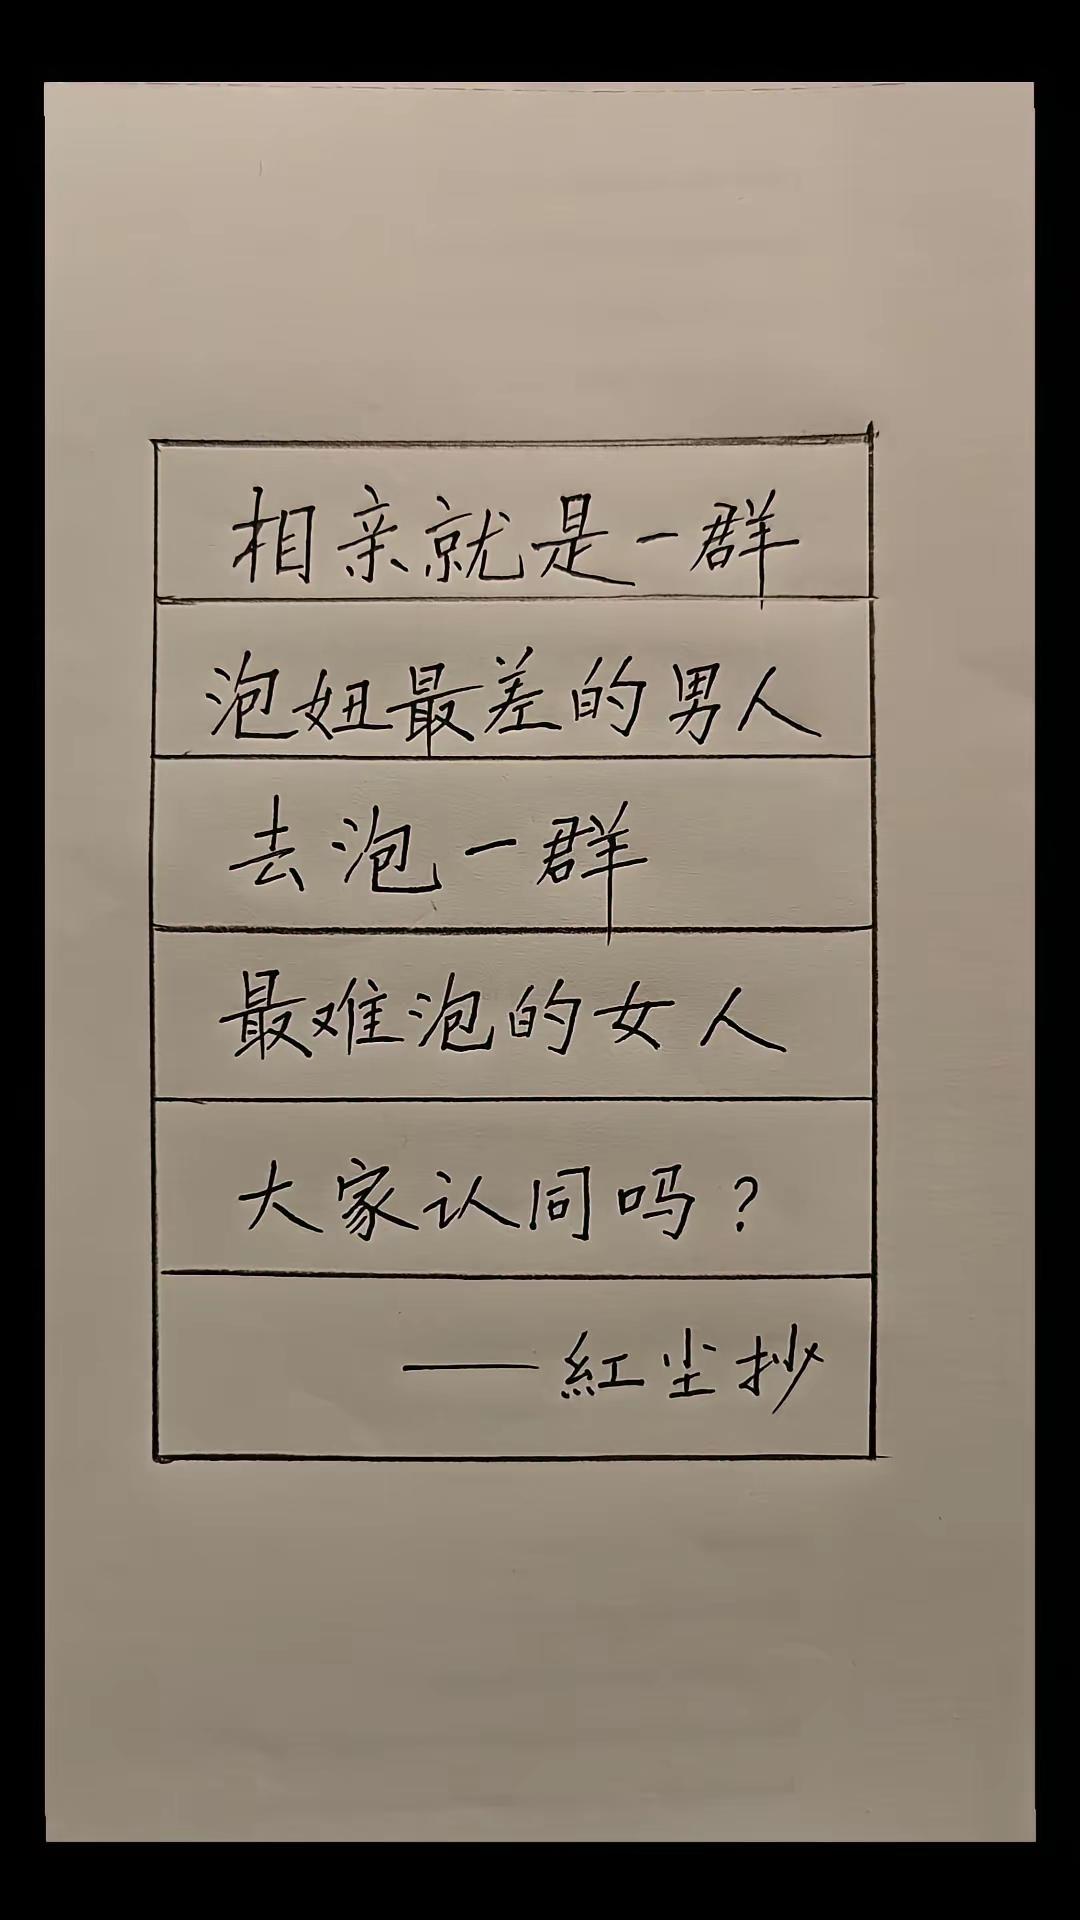 相亲就是一群
泡妞最差的男人
去泡一群
最难泡的女人
大家认同吗?
——紅尘抄